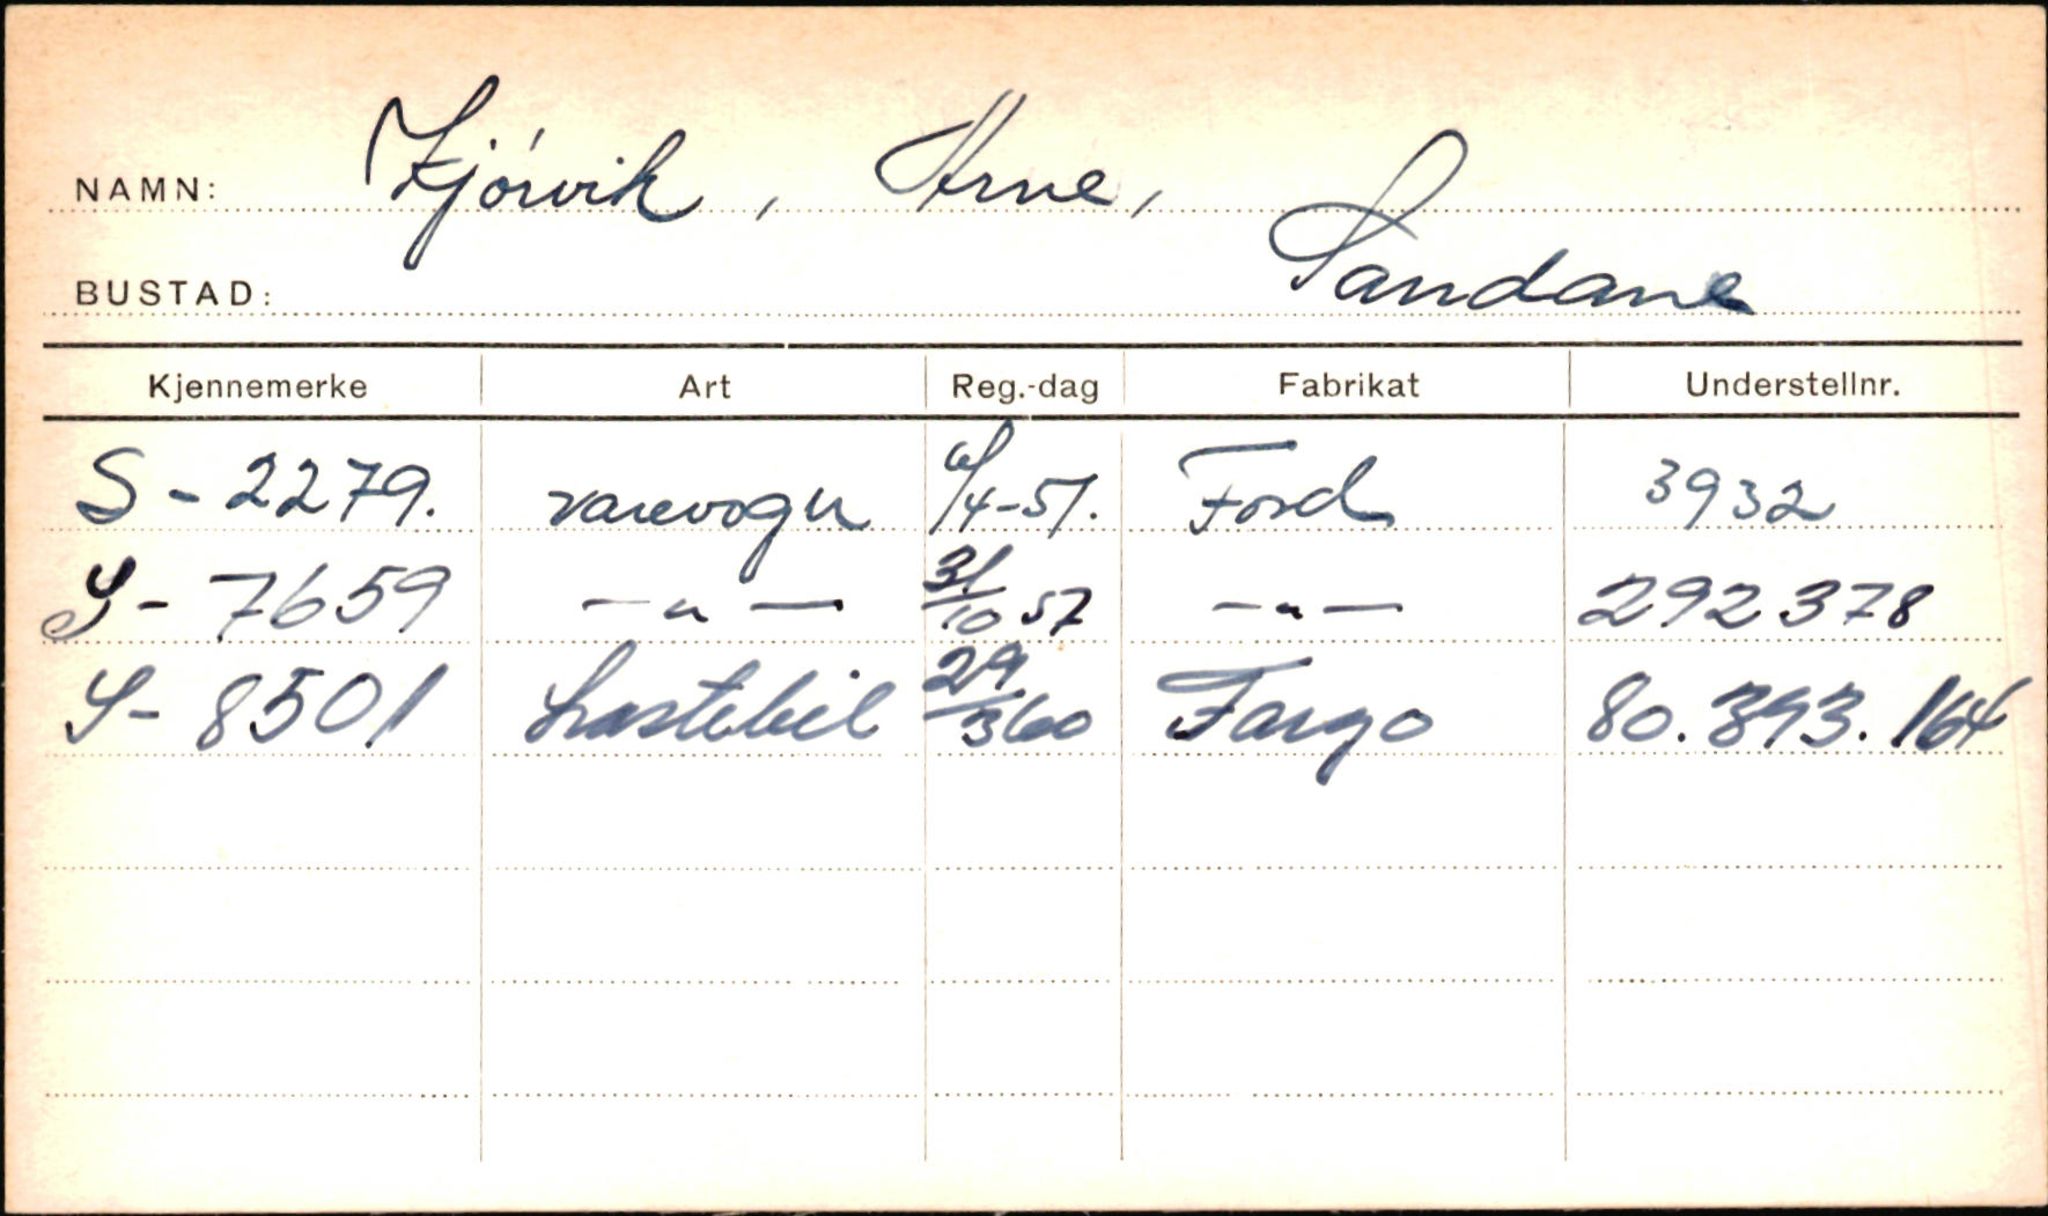 NAMN: Kjórvik, Arne,
BUSTAD: Sandane
Kjennemerke Art Reg.-dag Fabrikat Understellnr.
S-2279. varevogn 6/4-51. Ford 3932
S-7659 —"— 31/10 57 —"— 292378
S-8501 Lastebil 29/3 60 Fargo 80.393.164